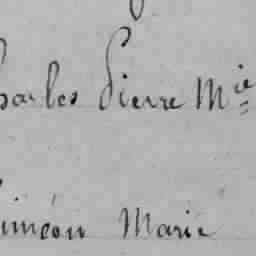 harles Pierre Mie
iméon Marie